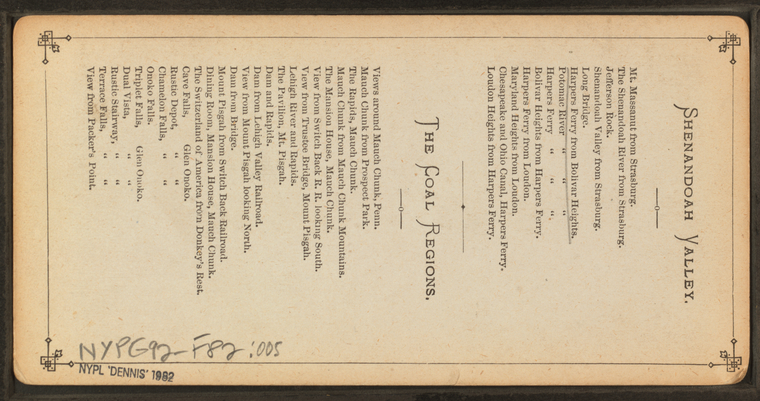 SHENANDOAH VALLEY.
Mt. Massanut from Strasburg.
The Shenandoah River from Strasburg.
Jefferson Rock.
Shenandoah Valley from Strasburg.
Long Bridge.
Harpers Ferry from Bolivar Heights.
Potomac River " " "
Harpers Ferry " " "
Bolivar Heights from Harpers Ferry.
Harpers Ferry from Loudon.
Maryland Heights from Loudon.
Chesapeake and Ohio Canal, Harpers Ferry.
Loudon Heights from Harpers Ferry.
THE COAL REGIONS.
Views around Mauch Chunk, Penn.
Mauch Chunk from Prospect Park.
The Rapids, Mauch Chunk.
Mauch Chunk from Mauch Chunk Mountains.
The Mansion House, Mauch Chunk.
View from Switch Back R. R. looking South.
View from Trustee Bridge, Mount Pisgah.
Lehigh River and Rapids.
The Pavilion, Mt. Pisgah.
Dam and Rapids.
Dam from Lehigh Valley Railroad.
View from Mount Pisgah looking North.
Dam from Bridge.
Mount Pisgah from Switch Back Railroad.
Dining Room, Mansion House, Mauch Chunk.
The Switzerland of America from Donkey's Rest.
Cave Falls, Glen Onoko.
Rustic Depot, " "
Chamelon Falls, " "
Onoko Falls.
Triplet Falls, Glen Onoko.
Dual Vista, " "
Rustic Stairway, " "
Terrace Falls, " "
View from Packer's Point.
NYPG92-F82:005
NYPL "DENNIS" 1982